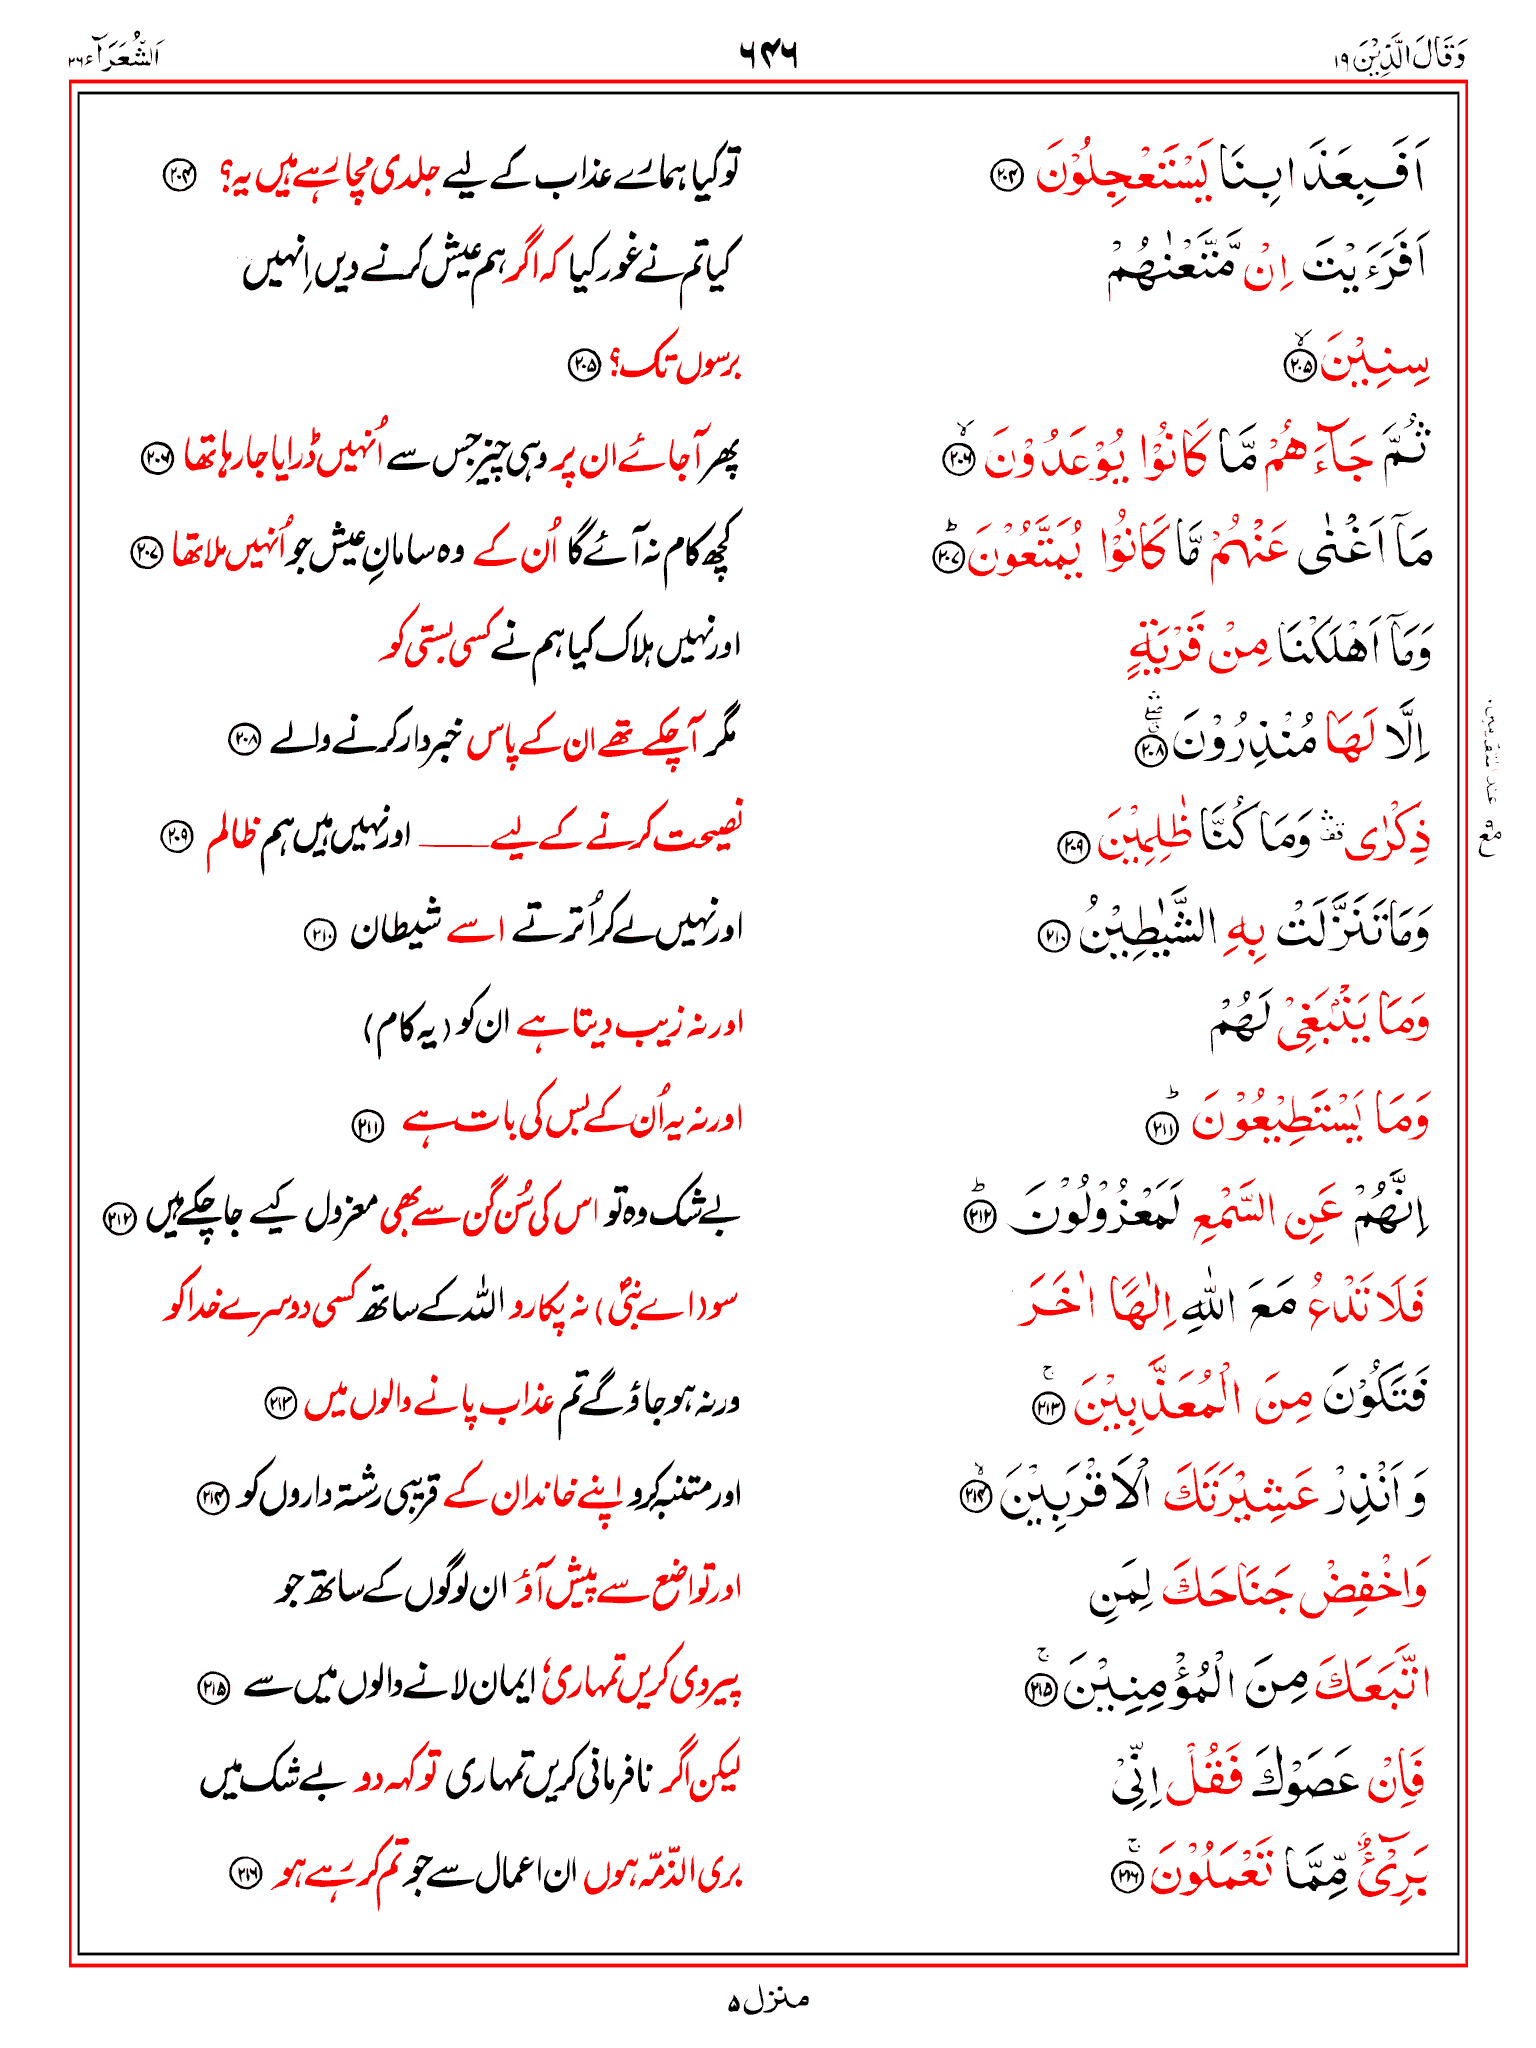 وَقَالَ الَّذِيْنَ ۱۹ ۶۴۶ اَلشُّعَرَآء ۲۶
اَفَبِعَذَابِنَا يَسْتَعْجِلُوْنَ ﴿۲۰۴﴾ تو کیا ہمارے عذاب کے لیے جلدی مچا رہے ہیں یہ؟ ﴿۲۰۴﴾
اَفَرَءَيْتَ اِنْ مَّتَّعْنٰهُمْ کیا تم نے غور کیا کہ اگر ہم عیش کرنے دیں اِنہیں
سِنِيْنَ ﴿۲۰۵﴾ۙ برسوں تک؟ ﴿۲۰۵﴾
ثُمَّ جَآءَهُمْ مَّا كَانُوْا يُوْعَدُوْنَ ﴿۲۰۶﴾ۙ پھر آجائے ان پر وہی چیز جس سے اُنہیں ڈرایا جا رہا تھا ﴿۲۰۶﴾
مَآ اَغْنٰى عَنْهُمْ مَّا كَانُوْا يُمَتَّعُوْنَ ﴿۲۰۷﴾ؕ کچھ کام نہ آئے گا اُن کے وہ سامانِ عیش جو اُنہیں ملا تھا ﴿۲۰۷﴾
وَمَآ اَهْلَكْنَا مِنْ قَرْيَةٍ اور نہیں ہلاک کیا ہم نے کسی بستی کو
اِلَّا لَهَا مُنْذِرُوْنَ ﴿۲۰۸﴾ مگر آ چکے تھے ان کے پاس خبردار کرنے والے ﴿۲۰۸﴾
ذِكْرٰى ۛ وَمَا كُنَّا ظٰلِمِيْنَ ﴿۲۰۹﴾ نصیحت کرنے کے لیے ____ اور نہیں ہیں ہم ظالم ﴿۲۰۹﴾
وَمَا تَنَزَّلَتْ بِهِ الشَّيٰطِيْنُ ﴿۲۱۰﴾ اور نہیں لے کر اُترتے اسے شیطان ﴿۲۱۰﴾
وَمَا يَنْۢبَغِىْ لَهُمْ اور نہ زیب دیتا ہے ان کو (یہ کام)
وَمَا يَسْتَطِيْعُوْنَ ﴿۲۱۱﴾ؕ اور نہ یہ اُن کے بس کی بات ہے ﴿۲۱۱﴾
اِنَّهُمْ عَنِ السَّمْعِ لَمَعْزُوْلُوْنَ ﴿۲۱۲﴾ؕ بے شک وہ تو اس کی سُن گن سے بھی معزول کیے جا چکے ہیں ﴿۲۱۲﴾
فَلَا تَدْعُ مَعَ اللّٰهِ اِلٰهًا اٰخَرَ سو (اے نبیؐ) نہ پکارو اللہ کے ساتھ کسی دوسرے خدا کو
فَتَكُوْنَ مِنَ الْمُعَذَّبِيْنَ ﴿۲۱۳﴾ۚ ورنہ ہو جاؤ گے تم عذاب پانے والوں میں ﴿۲۱۳﴾
وَاَنْذِرْ عَشِيْرَتَكَ الْاَقْرَبِيْنَ ﴿۲۱۴﴾ۙ اور متنبہ کرو اپنے خاندان کے قریبی رشتہ داروں کو ﴿۲۱۴﴾
وَاخْفِضْ جَنَاحَكَ لِمَنِ اور تواضع سے پیش آؤ ان لوگوں کے ساتھ جو
اتَّبَعَكَ مِنَ الْمُؤْمِنِيْنَ ﴿۲۱۵﴾ۚ پیروی کریں تمہاری، ایمان لانے والوں میں سے ﴿۲۱۵﴾
فَاِنْ عَصَوْكَ فَقُلْ اِنِّىْ لیکن اگر نافرمانی کریں تمہاری تو کہہ دو بے شک میں
بَرِىْٓءٌ مِّمَّا تَعْمَلُوْنَ ﴿۲۱۶﴾ۚ بری الذّمّہ ہوں ان اعمال سے جو تم کر رہے ہو ﴿۲۱۶﴾
منزل ۵